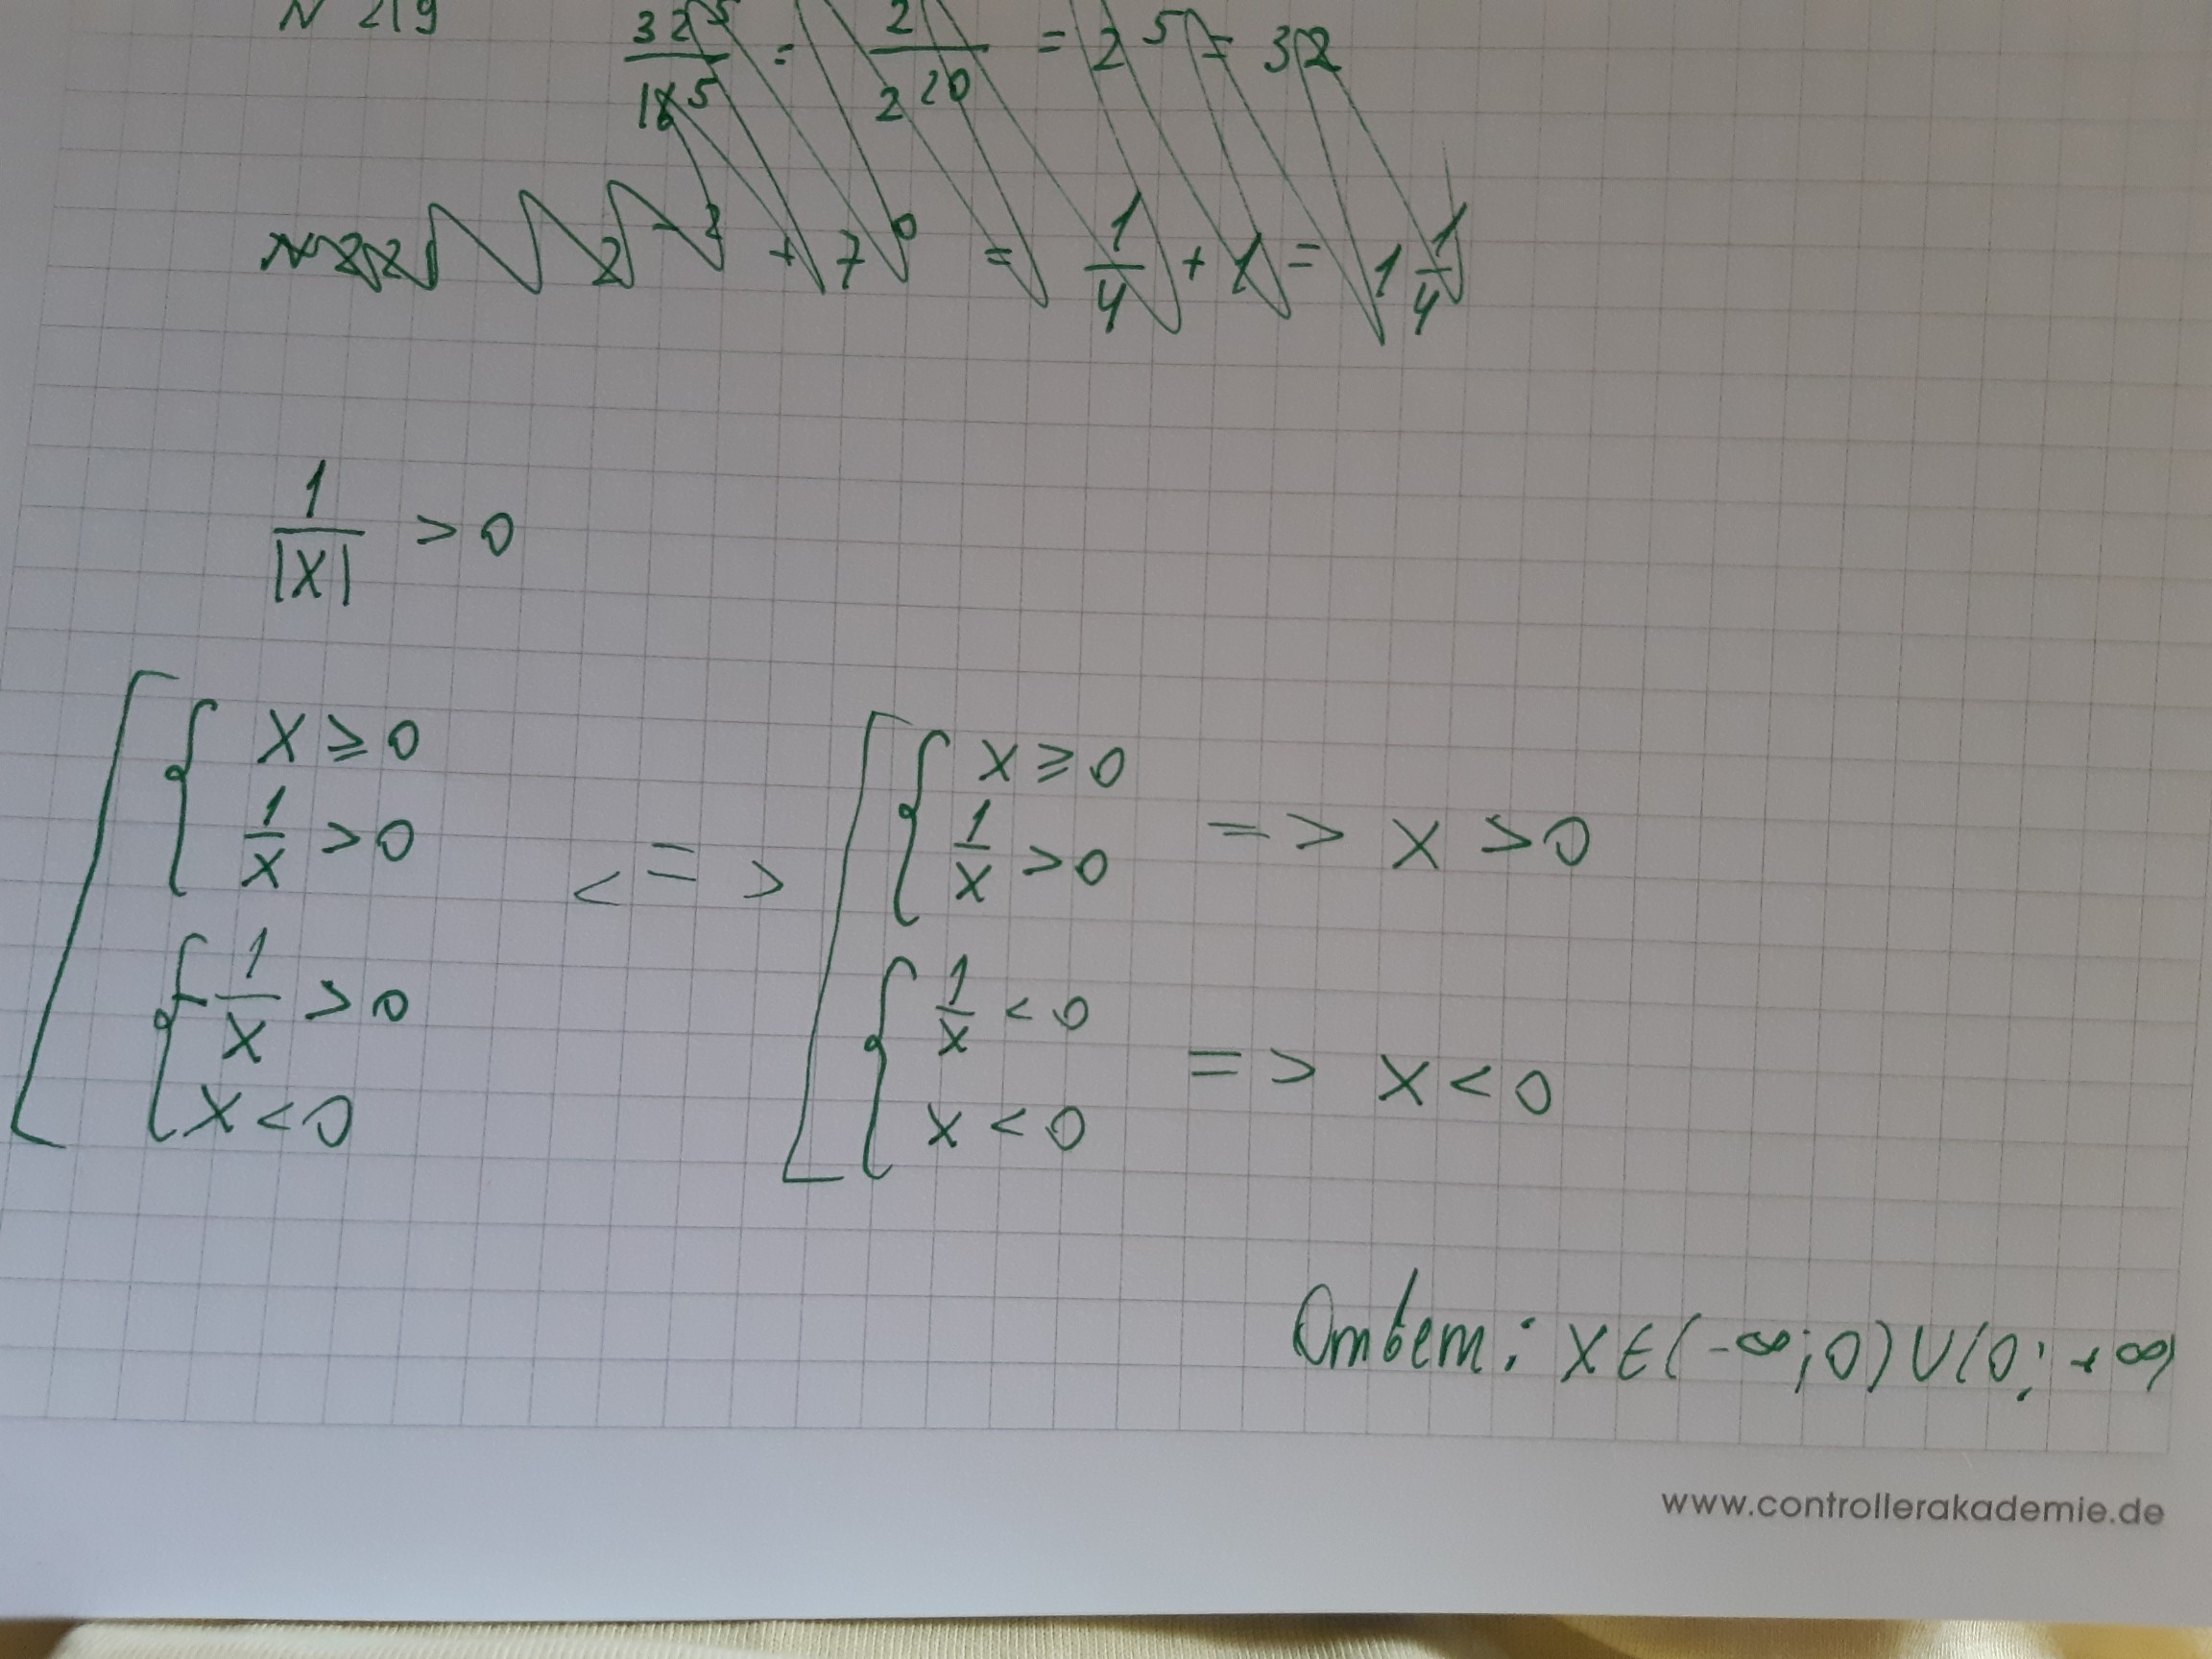 N 219
32⁵/16⁵ = 2/2²⁰ = 2⁵ = 32
2⁻² + 7⁰ = 1/4 + 1 = 1 1/4
1/|x| > 0
[ { x ⩾ 0 ; 1/x > 0 <=> [ { x ⩾ 0 ; 1/x > 0 => x > 0
{ -1/x > 0 ; x < 0 { 1/x < 0 ; x < 0 => x < 0
Ответ: x ∈ (-∞; 0) ∪ (0; +∞)
www.controllerakademie.de